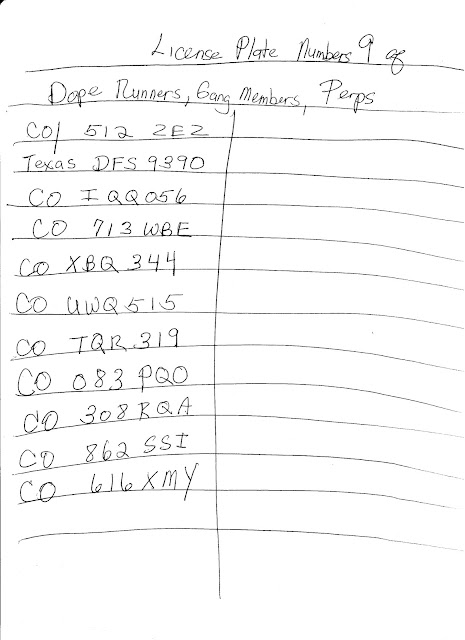 License Plate Numbers 9 of
Dope Runners, Gang Members, Perps
CO/ 512 ZEZ
Texas DFS 9390
CO IQQ056
CO 713 WBE
CO XBQ 344
CO UWQ515
CO TQR 319
CO 083 PQO
CO 308 RQA
CO 862 SSI
CO 616 XMY